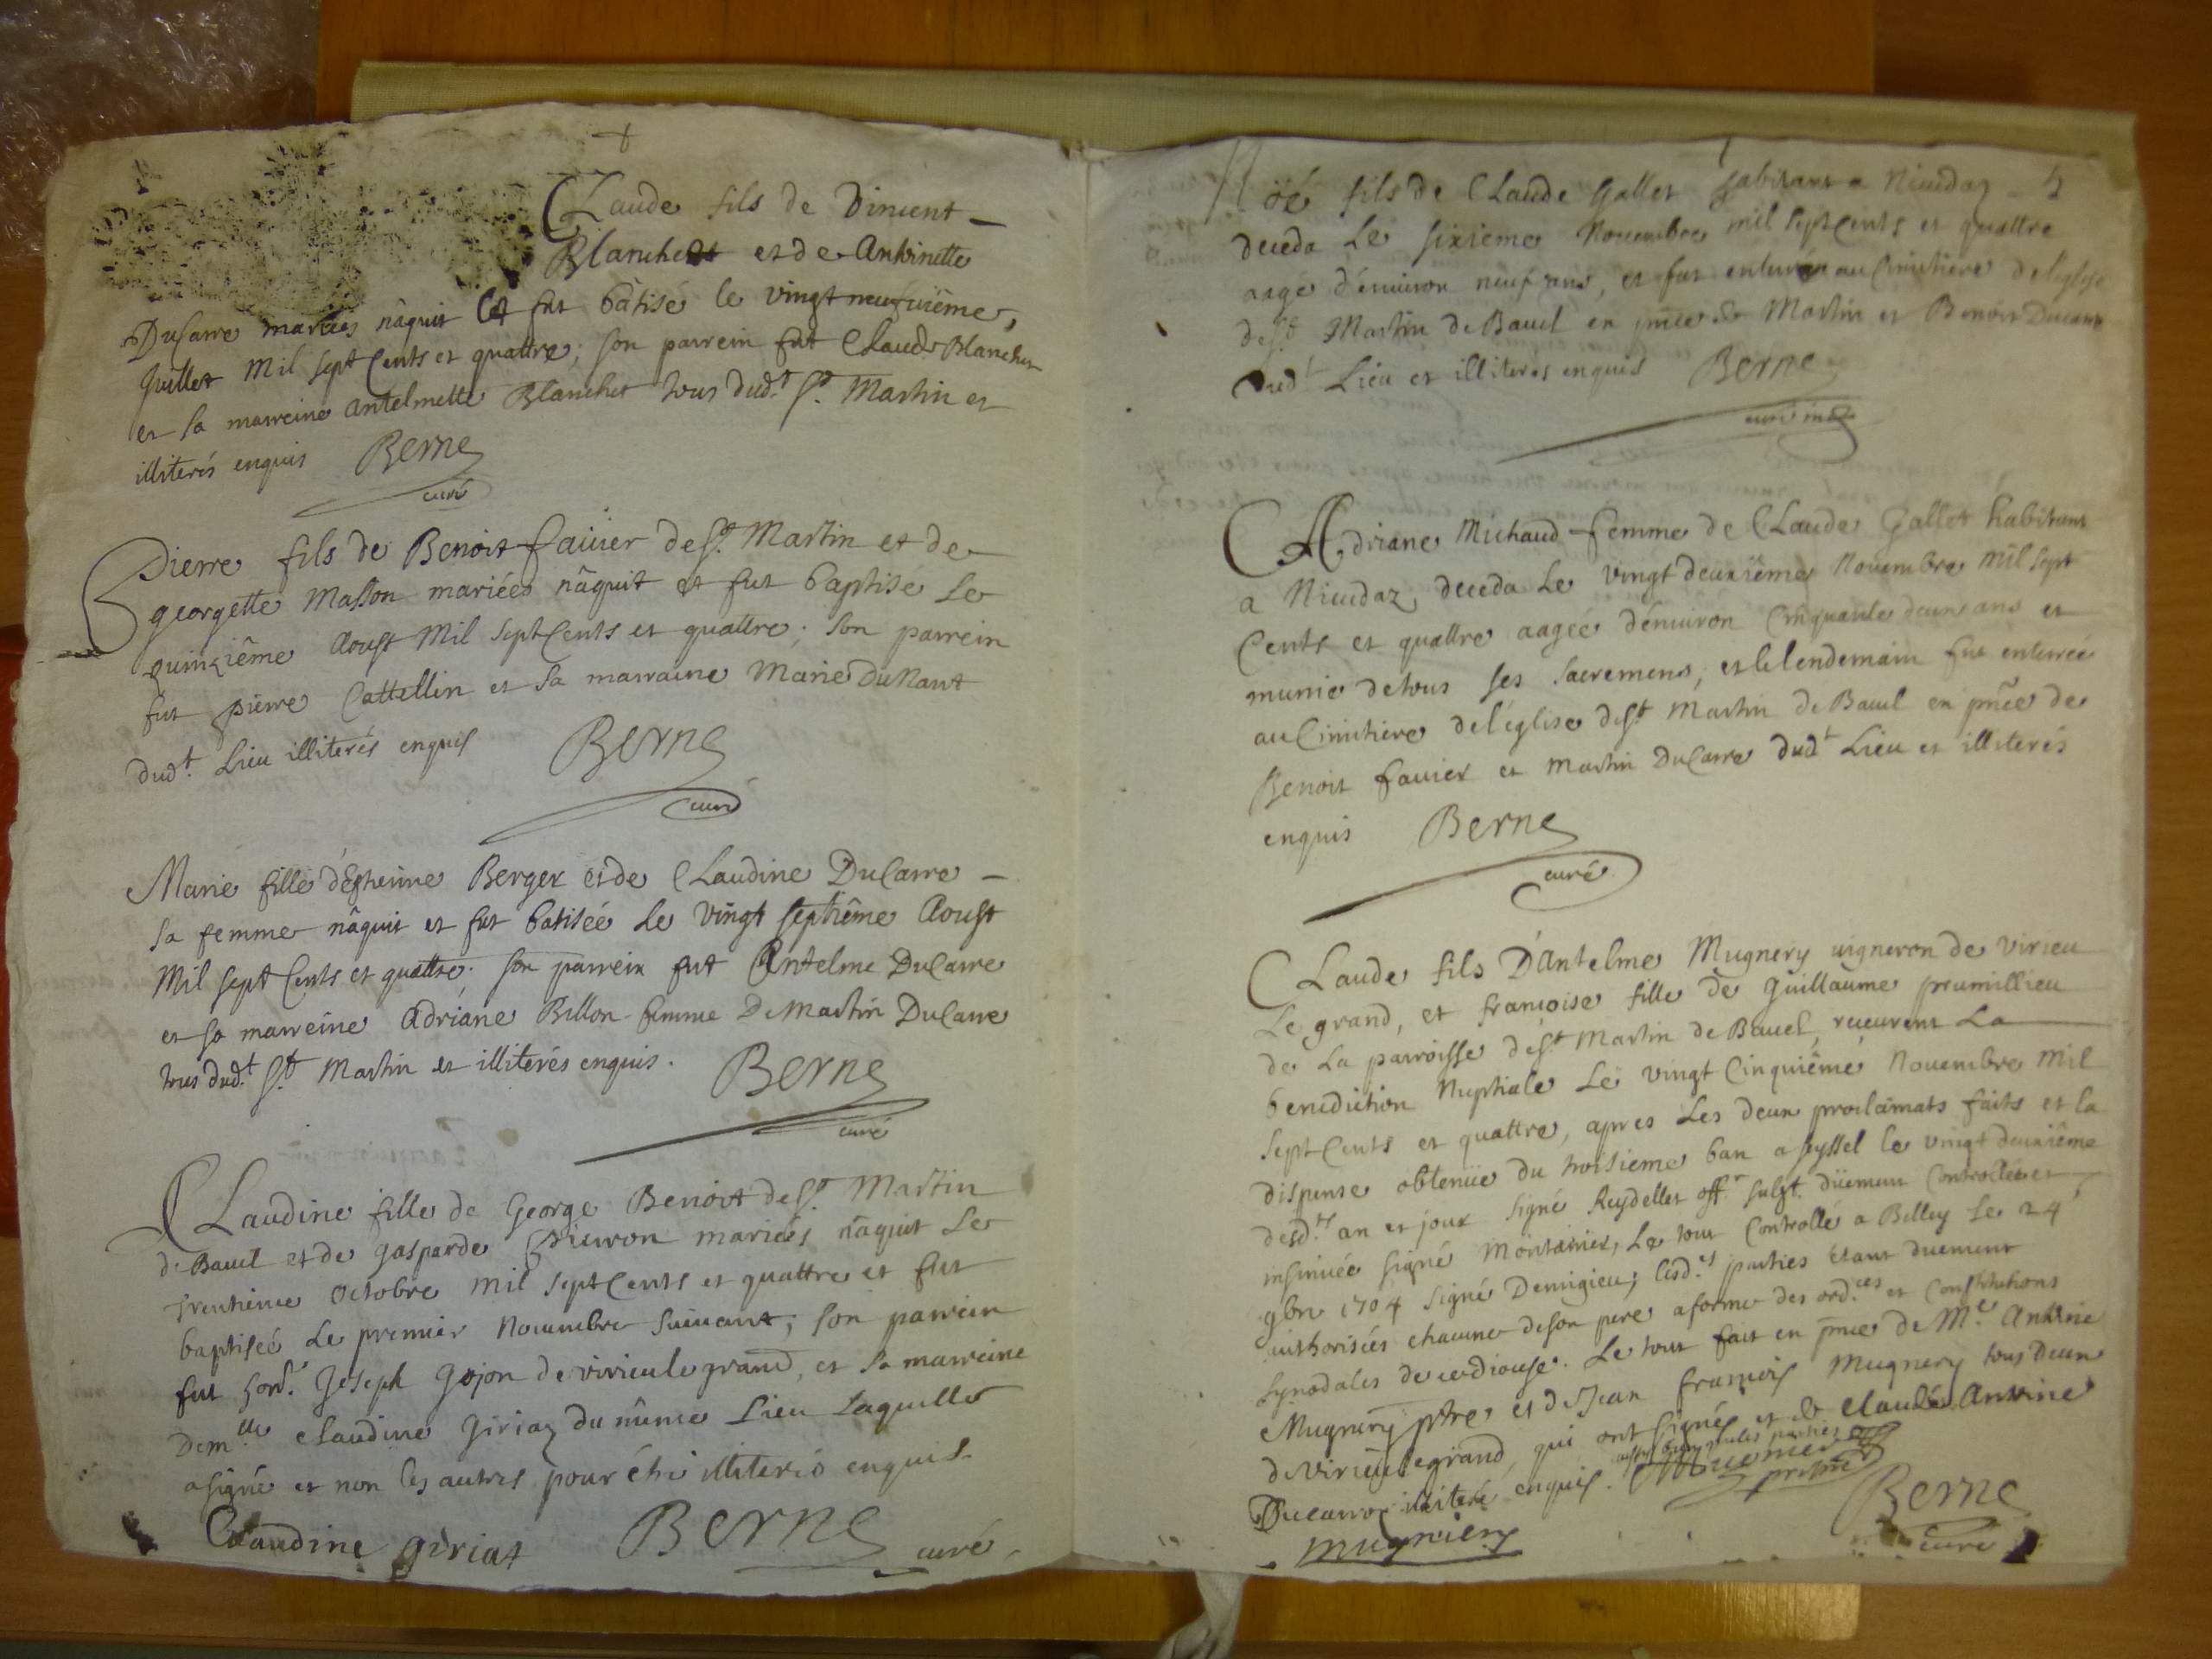 Claude fils de Vincent
Blanchet et de Antoinette
DuCarre mariées nâquit et fut bâtisé le vingt neufvième
Juillet Mil sept Cents et quattre; son parrein fut Claude Blanchet
et sa marreine antelmette Blanchet tous dud.t S.t Martin et
illiterés enquis Berne
curé
Pierre fils de Benoit favier de S.t Martin et de
georgette Masson mariées nâquit et fut baptisé le
quinzième Aoust Mil Sept Cents et quattre; son parrein
fut pierre Cattellin et sa marraine Marie DuNant
dud.t Lieu illiterés enquis Berne
curé
Marie fille d'Estienne Berger et de Claudine DuCarre
sa femme nâquit et fut batisée le vingt septième Aoust
Mil sept Cents et quattre; son parrein fut Antelme DuCarre
et sa marreine Adriane Billon femme De Martin DuCarre
tous dud.t S.t Martin et illiterés enquis. Berne
curé
Claudine fille de George Benoit de S.t Martin
de Bavel et de gasparde mariées nâquit le
trentieme Octobre mil sept Cents et quattre et fut
baptisée le premier Novembre suivant; son parrein
fut hon.e Joseph Gojon de virieule grand, et sa marreine
Dem.lle Claudine Giriaz du même Lieu Laquelle
a signé et non les autres pour être illiterés enquis.
Claudine giriat Berne curé
Noé fils de Claude Gallet habitant a Niudaz 5
deceda le sixieme Novembre mil sept Cents et quattre
aagé d'environ neuf ans, et fut enterré au Cimitiere de l'eglise
de S.t Martin de Bavel en pnce de Martin et Benoit Ducarre
dud.t Lieu et illiteres enquis Berne
curé
Adriane Michaud femme de Claude Gallet habitant
a Niudaz, deceda le vingt deuxième Novembre mil sept
Cents et quattre aagée d'environ Cinquante deux ans et
munie de tous ses sacremens, et le lendemain fut enterrée
au Cimitiere de l'église de S.t Martin de Bavel en pnce de
Benoit favier et Martin DuCarre dud.t Lieu et illiterés
enquis Berne
curé
Claude fils D'Antelme Mugnery vigneron de Virieu
Le grand, et francoise fille de Guillaume prumillieu
de La parroisse de S.t Martin de Bavel, recevrent La
benediction Nuptiale Le vingt Cinquième Novembre Mil
sept Cents et quattre, apres Les deux proclamats faits et la
dispense obtenüe du troisieme ban a seyssel le vingt deuxième
desd.ts an et jour signé Reydellet off.l subst. düement Controllée et
insinuée signé Montanier, Le tout Controllé a Belley Le 24
9bre 1704 signé Demigieu; lesd.es parties étant duement
authorisées chacune de son pere a forme des ord.ces et Constitutions
synodales de ce diocese. Le tout fait en pnce de M.e Antoine
Mugnery ptre et de Jean francois Mugnery tous Deux
de Virieulegrand, qui ont signés et de Claude Antoine
Ducarre illiteré enquis. aussy bien que les parties
Mugnier prebtre
mugniery Berne
curé